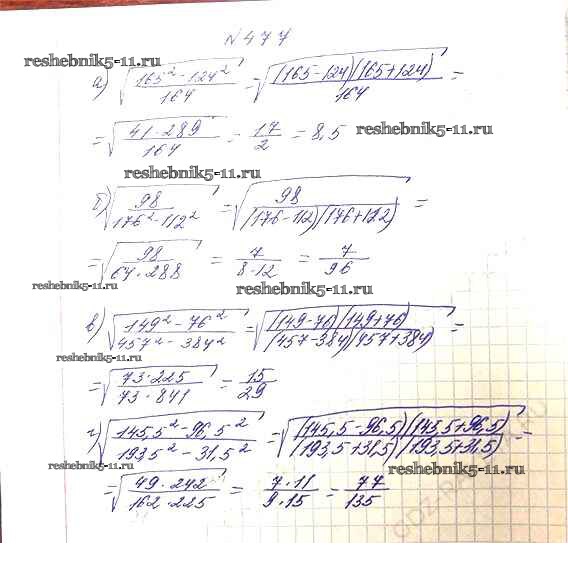 №477
reshebnik5-11.ru
reshebnik5-11.ru
а) √((165² - 124²)/164) = √((165-124)(165+124)/164) =
= √((41·289)/164) = 17/2 = 8,5
reshebnik5-11.ru
reshebnik5-11.ru
б) √(98/(176² - 112²)) = √(98/((176-112)(176+112))) =
= √(98/(64·288)) = 7/(8·12) = 7/96
reshebnik5-11.ru
reshebnik5-11.ru
в) √((149² - 76²)/(457² - 384²)) = √((149-76)(149+76)/((457-384)(457+384))) =
reshebnik5-11.ru
= √((73·225)/(73·841)) = 15/29
г) √((145,5² - 96,5²)/(193,5² - 31,5²)) = √((145,5-96,5)(145,5+96,5)/((193,5+31,5)(193,5+31,5))) =
reshebnik5-11.ru
reshebnik5-11.ru
= √((49·242)/(162·225)) = (7·11)/(9·15) = 77/135